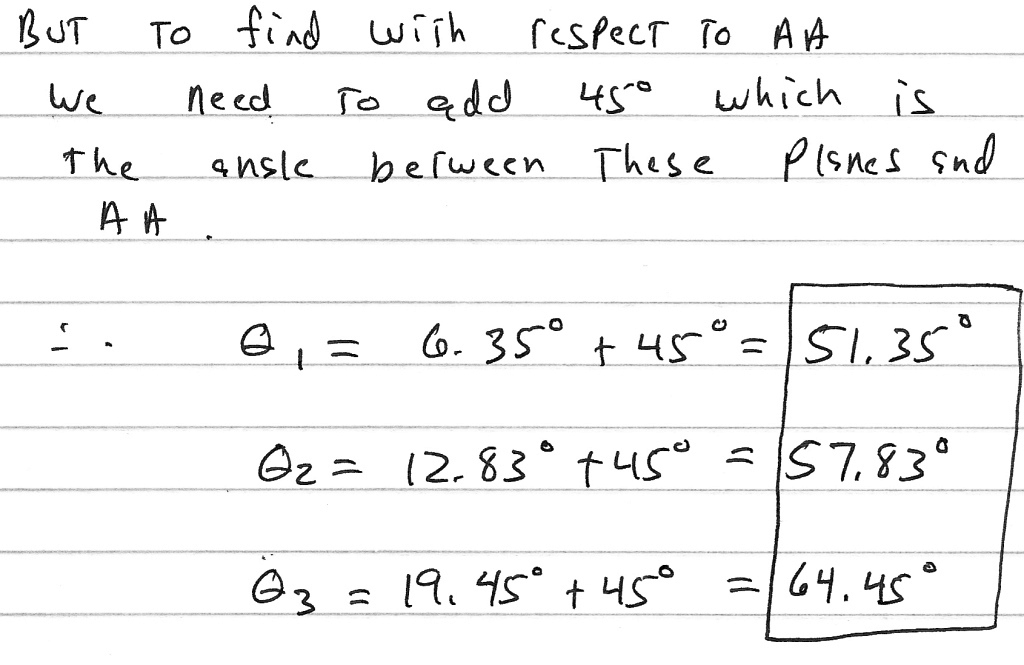 BUT TO find with respect to AA
We need to add 45° which is
the angle between These Planes and
AA.
∴ θ₁ = 6.35° + 45° = 51.35°
θ₂ = 12.83° + 45° = 57.83°
θ₃ = 19.45° + 45° = 64.45°